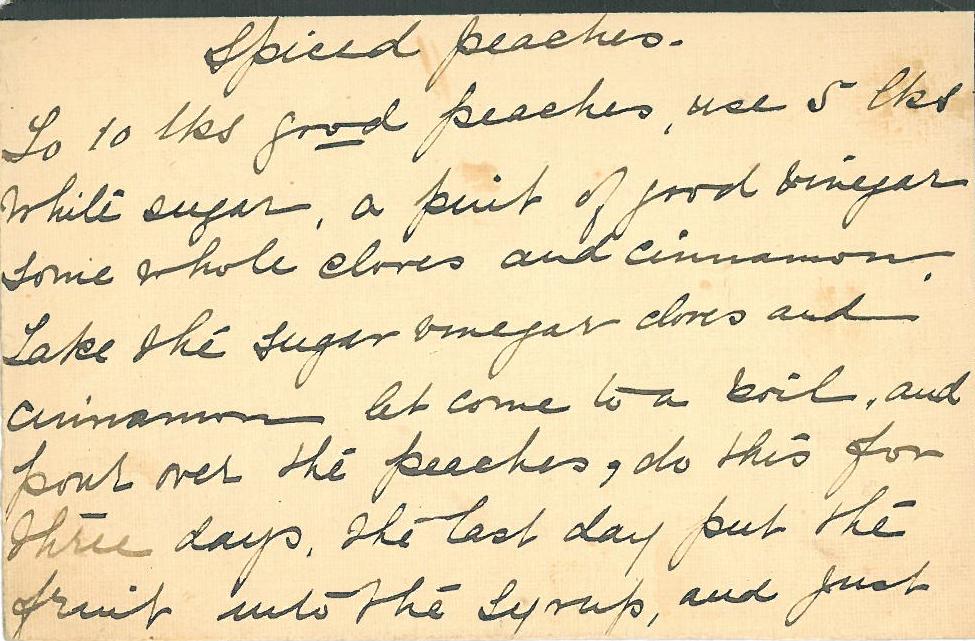 Spiced peaches.
To 10 lbs good peaches, use 5 lbs
white sugar, a pint of good vinegar
some whole cloves and cinnamon.
Take the sugar vinegar cloves and
cinnamon let come to a boil, and
pour over the peaches, do this for
three days, the last day put the
fruit into the syrup, and just